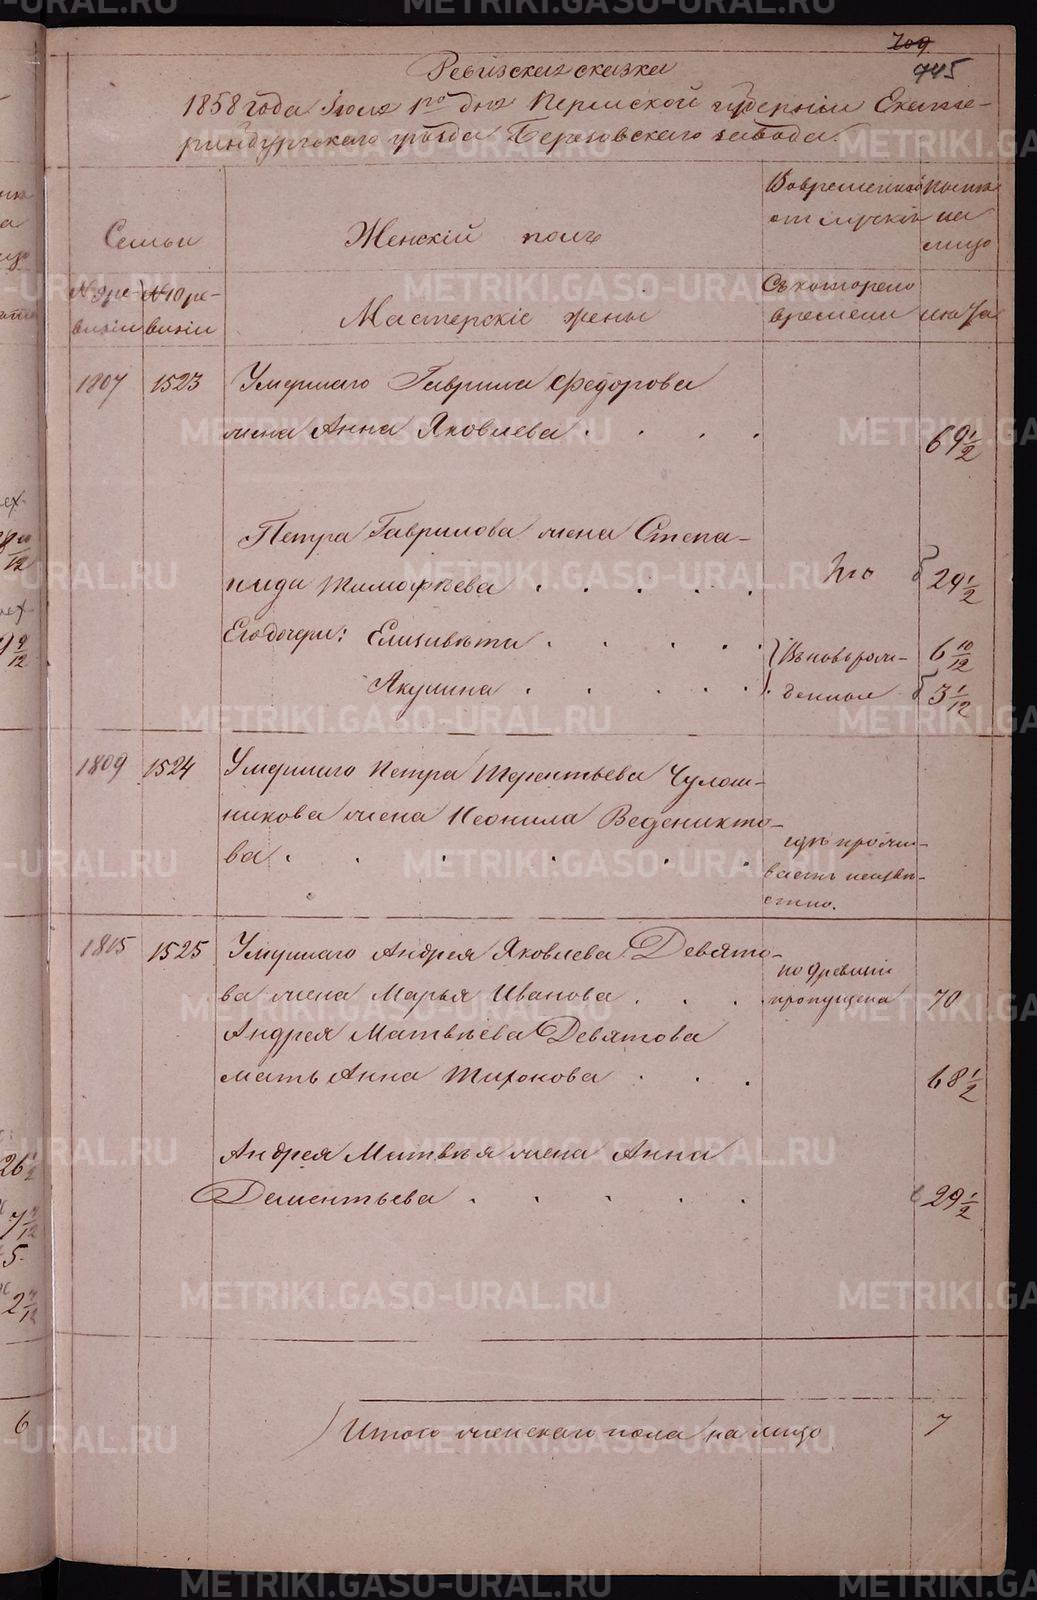 709.
945
Ревизская сказка
1858 года Июля 1го дня Пермской губернии Екате-
ринбургскаго уѣзда Березовскаго завода.
Семьи
Женскій полъ
Во временной отлучкѣ
на лицо
№ 9 ре-
визіи
№ 10 ре-
визіи
Мастерскіе жены
Съ котораго
времени
лѣта
1807 1523 Умершаго Гаврила Федорова
жена Анна Яковлева . . . . 69 1/2
Петра Гаврилова жена Степа-
нида Тимофѣева . . . . . 24 1/2
Его дочери: Елизавета . . . . . Вновьрож- 6 10/12
Акулина . . . . . денныя 3 1/12
1809 1524 Умершаго Петра Терентьева Чулош-
никова жена Неонила Веденикто-
ва . . . . . гдѣ прожи-
ваетъ неизвѣ-
стно.
1815 1525 Умершаго Андрея Яковлева Девято-
ва жена Марья Иванова . . . пропущена 70
Андрея Матвѣева Девятова
мать Анна Тихонова . . . 68 1/2
Андрея Матвѣя жена Анна
Дементьева . . . . . 29 1/2
Итого женскаго пола на лицо 7
METRIKI.GASO-URAL.RU